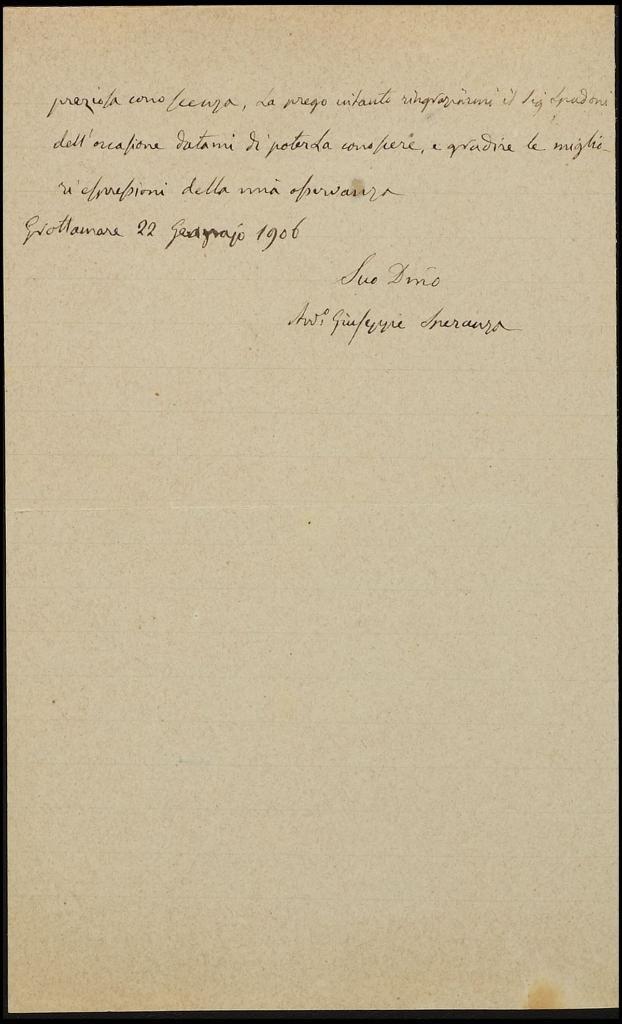 preziosa conoscenza, La prego intanto ringraziarmi il Sig Spadoni
dell'occasione datami di poterLa conoscere, e gradire le miglio-
ri espressioni della mia osservanza
Grottamare 22 Gennajo 1906
Suo Dmo
Avvo Giuseppe Speranza